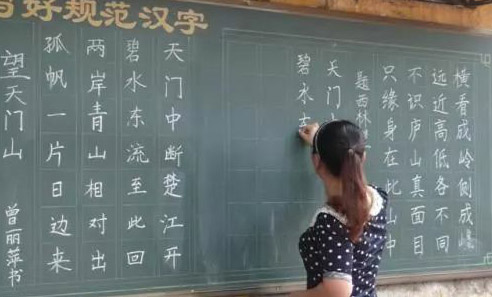 写好规范汉字
横看成岭侧成峰
远近高低各不同
不识庐山真面目
只缘身在此山中
题西林
天门
碧水
天门中断楚江开
碧水东流至此回
两岸青山相对出
孤帆一片日边来
望天门山
曾丽萍书